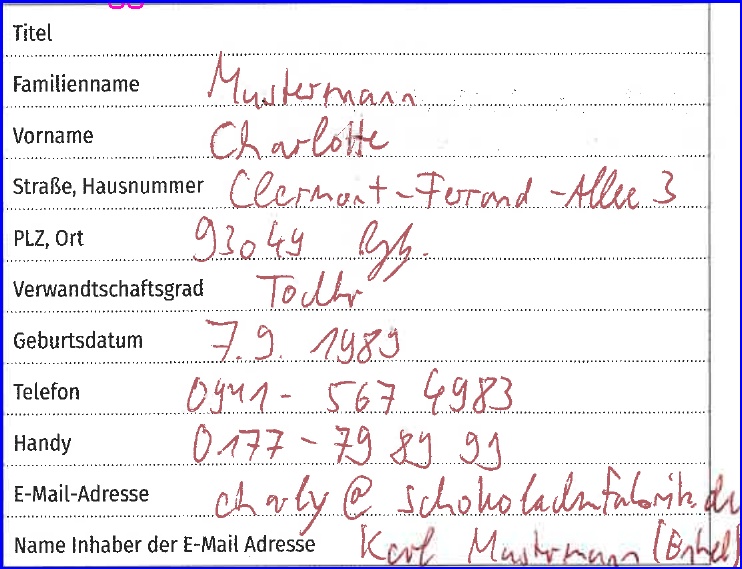 Titel
Familienname Mustermann
Vorname Charlotte
Straße, Hausnummer Clermont-Ferrand-Allee 3
PLZ, Ort 93049 Rgb.
Verwandtschaftsgrad Tochter
Geburtsdatum 7.9. 1989
Telefon 0941- 567 4983
Handy 0177-79 89 99
E-Mail-Adresse charly@schokoladenfabrik.de
Name Inhaber der E-Mail Adresse Karl Mustermann (Enkel)